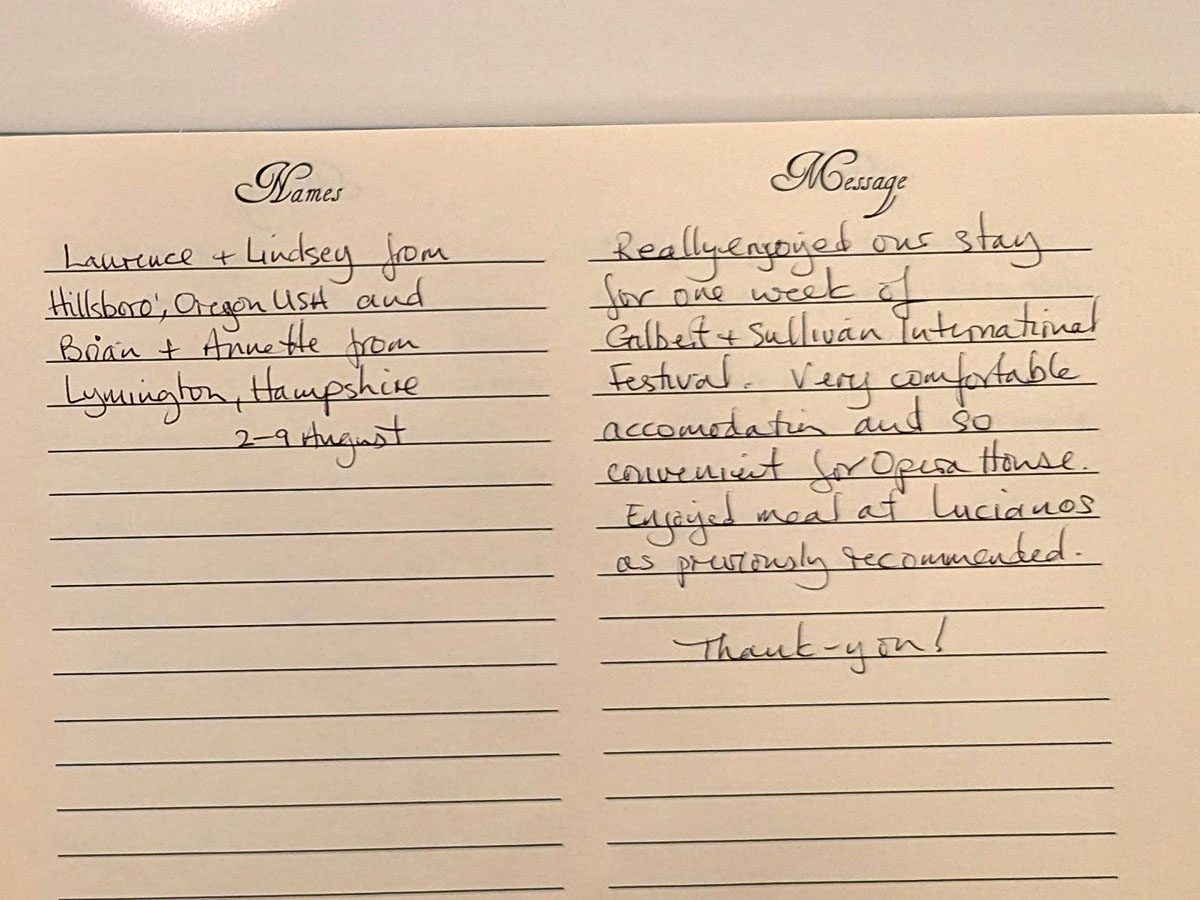 Names
Laurence + Lindsey from
Hillsboro', Oregon USA and
Brian + Annette from
Lymington, Hampshire
2-9 August
Message
Really enjoyed our stay
for one week of
Gilbert + Sullivan International
Festival. Very comfortable
accomodation and so
convenient for Opera House.
Enjoyed meal at Lucianos
as previously recommended.
Thank-you!